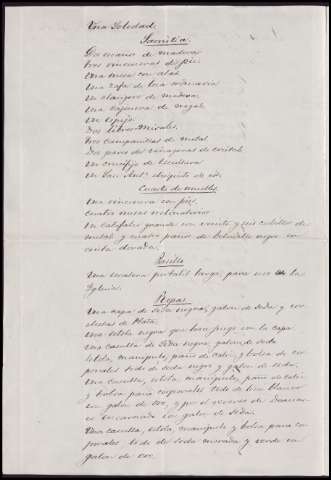 Una Soledad.
Sacristia.
Dos armarios de madera
tres sin de pie.
Una mesa con alas
Una Tasa de loza ordinaria
Un aguamanil de madera
Una cajonera de nogal
Un espejo.
Dos libros Misales.
tres campanillas de metal
Dos pares de vinageras de cristal
Un crucifijo de Escultura
Un San Antº chiquito de id.
Cuarto de muebles.
Una con pies.
Cuatro mesas
Un catafalco grande con veinte y seis cabellos de
metal y cuatro paños de negro con
cinta dorada.
Pasillo
Una escalera portatil larga, para uso de la
Iglesia.
Ropas
Una capa de seda negra, galon de seda y cor
chetas de Plata.
Una estola negra que hace juego con la capa
Una casulla de seda negra, galon de seda
Estola, manipulo, paño de caliz y bolsa de cor
porales todo de seda negro y galon de seda.
Una casulla, estola, manipulo, paño de caliz
y bolsa para corporales todo de blanco
con galon de oro, y por el reverso de Damas
co encarnado con galon de Seda.
Una casulla, estola, manipulo y bolsa para cor
porales todo de seda morada y verde con
galon de oro.